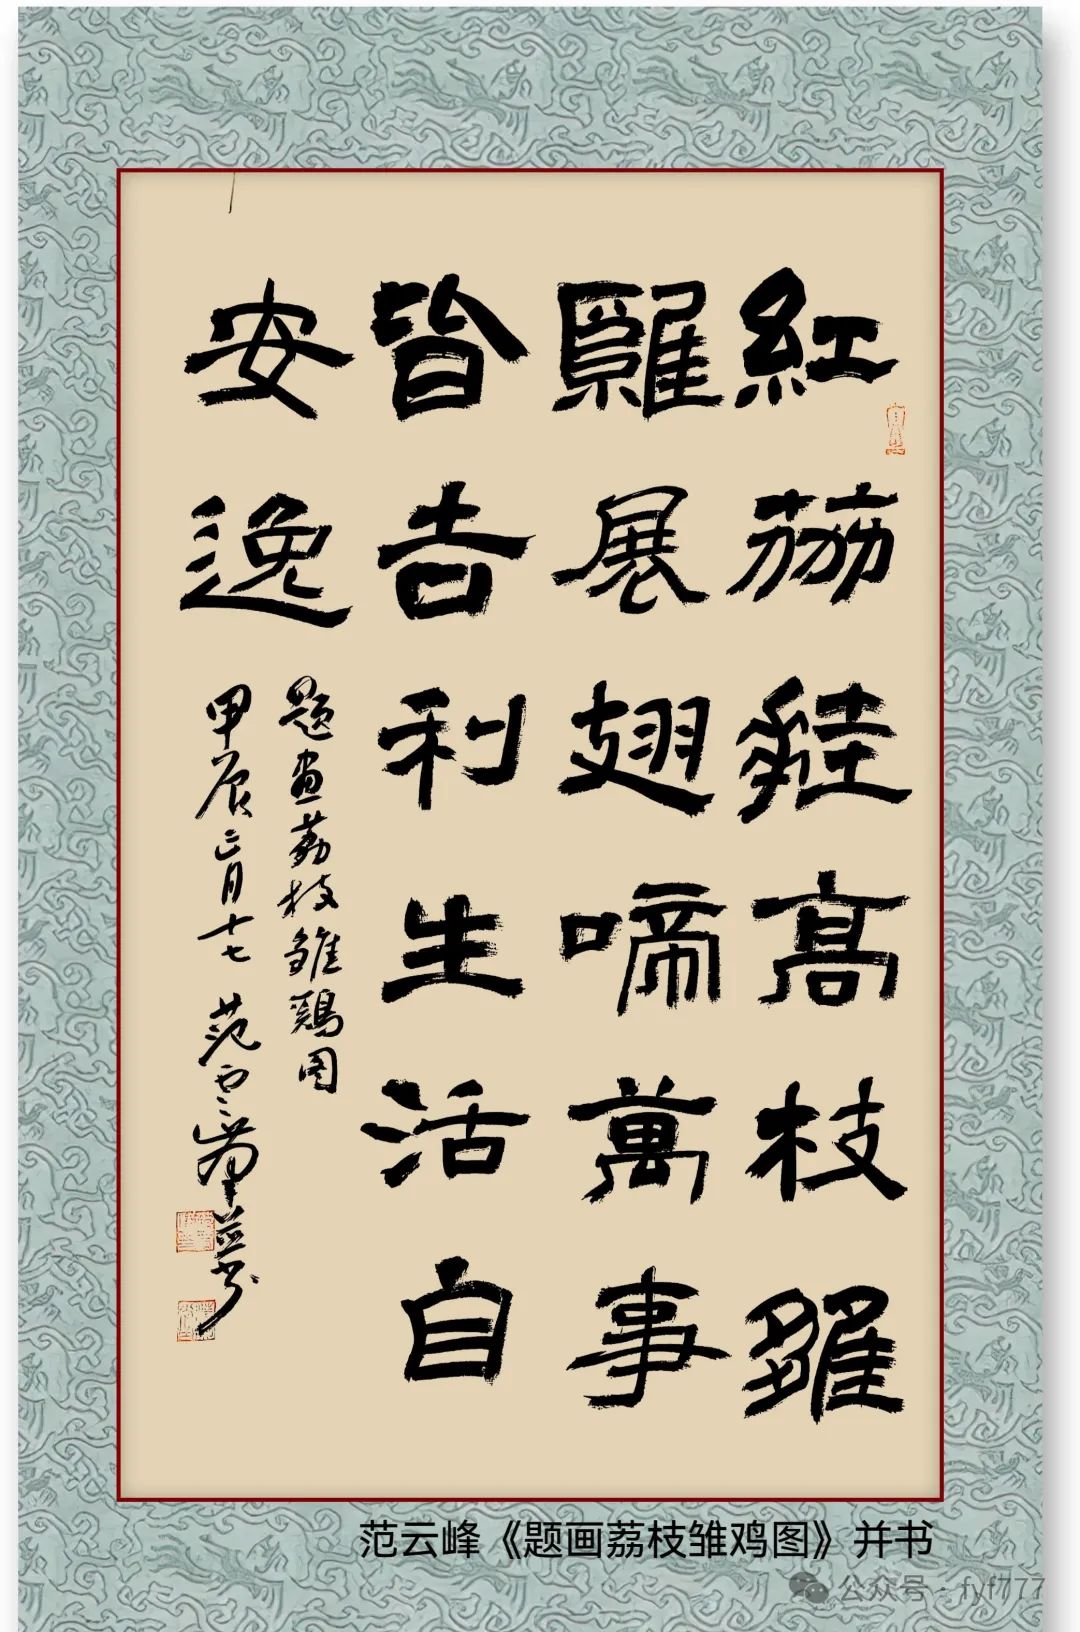 紅荔高枝雛
展翅啼萬事
皆吉利生活自
安逸
题畫荔枝雛鷄图
甲辰正月十七 范云峯並书
范云峰《题画荔枝雏鸡图》并书
公众号·fyf777